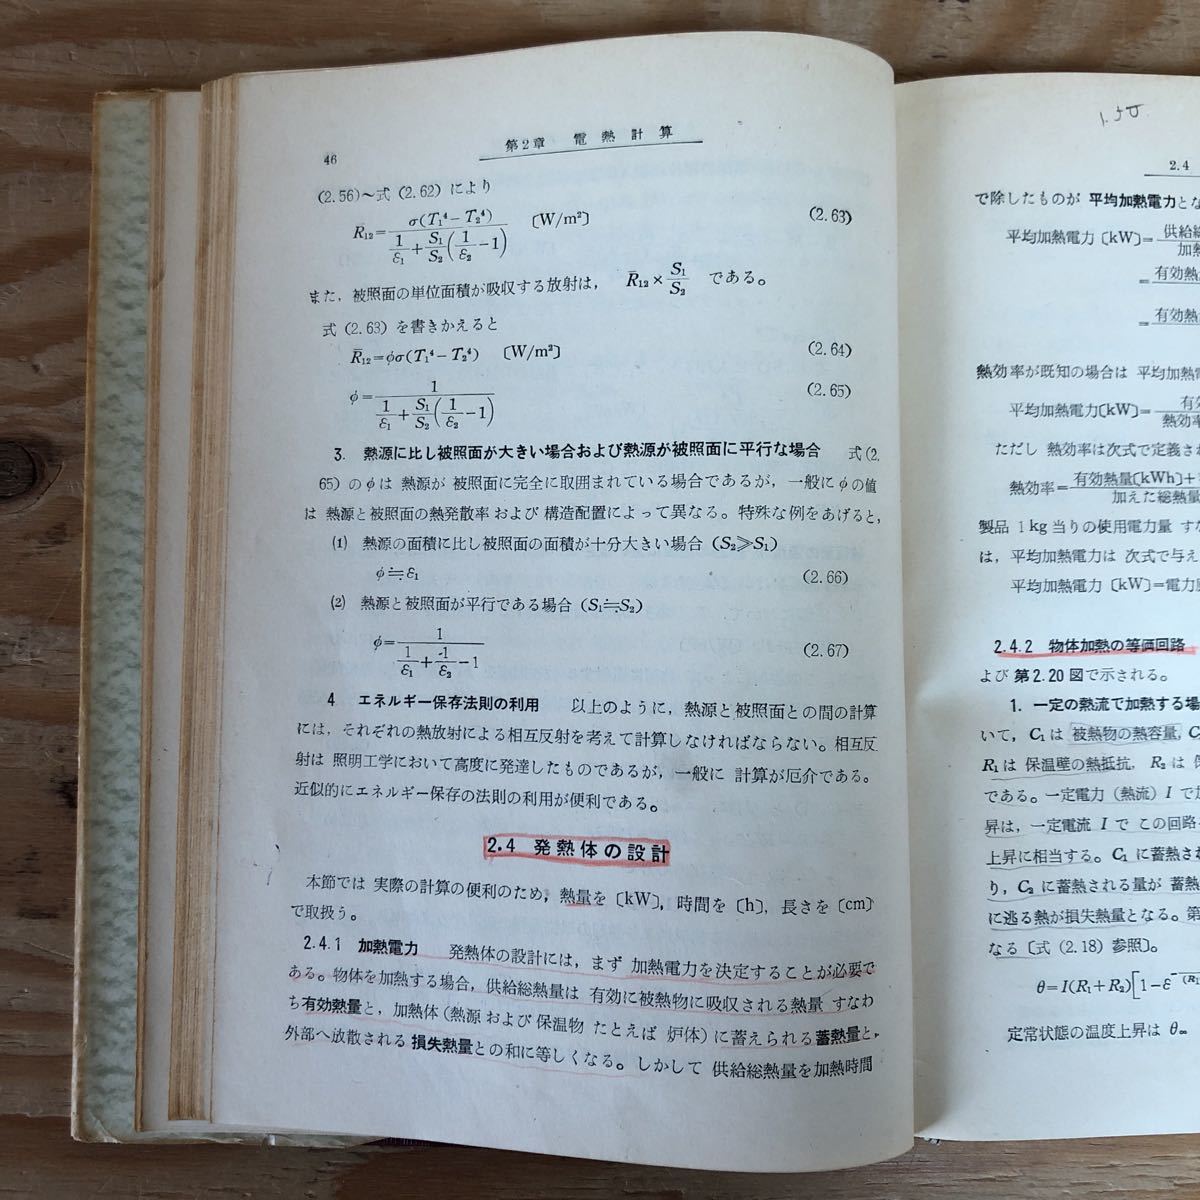 46
第2章 電熱計算
(2.56)〜式 (2.62) により
R̄₁₂=σ(T₁⁴−T₂⁴)/(1/ε₁+S₁/S₂(1/ε₂−1)) 〔W/m²〕 (2.63)
また，被照面の単位面積が吸収する放射は， R̄₁₂×S₁/S₂ である。
式 (2.63) を書きかえると
R̄₁₂=φσ(T₁⁴−T₂⁴) 〔W/m²〕 (2.64)
φ=1/(1/ε₁+S₁/S₂(1/ε₂−1)) (2.65)
3. 熱源に比し被照面が大きい場合および熱源が被照面に平行な場合 式(2.
65) のφは 熱源が 被照面に完全に取囲まれている場合であるが，一般にφの値
は 熱源と被照面の熱発散率 および 構造配置によって異なる。特殊な例をあげると，
(1) 熱源の面積に比し被照面の面積が十分大きい場合 (S₂≫S₁)
φ≒ε₁ (2.66)
(2) 熱源と被照面が平行である場合 (S₁≒S₂)
φ=1/(1/ε₁+1/ε₂−1) (2.67)
4. エネルギー保存法則の利用 以上のように，熱源と被照面との間の計算
には，それぞれの熱放射による相互反射を考えて計算しなければならない。相互反
射は 照明工学において高度に発達したものであるが，一般に 計算が厄介である。
近似的にエネルギー保存の法則の利用が便利である。
2.4 発熱体の設計
本節では 実際の計算の便利のため，熱量を〔kW〕，時間を〔h〕，長さを〔cm〕
で取扱う。
2.4.1 加熱電力 発熱体の設計には，まず 加熱電力を決定することが必要で
ある。物体を加熱する場合，供給総熱量は 有効に被熱物に吸収される熱量 すなわ
ち有効熱量と，加熱体（熱源 および 保温物 たとえば 炉体）に蓄えられる蓄熱量と，
外部へ放散される 損失熱量との和に等しくなる。しかして 供給総熱量を加熱時間
2.4
で除したものが 平均加熱電力とな
平均加熱電力〔kW〕=供給総
加熱
=有効熱
=有効熱
熱効率が既知の場合は 平均加熱電
平均加熱電力〔kW〕=有効
熱効率
ただし 熱効率は次式で定義され
熱効率=有効熱量〔kWh〕+
加えた総熱量
製品 1kg 当りの使用電力量 すな
は，平均加熱電力は 次式で与え
平均加熱電力〔kW〕=電力
2.4.2 物体加熱の等価回路
よび 第2.20 図で示される。
1. 一定の熱流で加熱する場
いて，C₁は 被熱物の熱容量，C
R₁は 保温壁の熱抵抗，R₂は
である。一定電力（熱流）I で加
昇は，一定電流 I で この回路
上昇に相当する。C₁ に蓄熱され
り，C₂ に蓄熱される量が 蓄熱
に逃る熱が損失熱量となる。第
なる〔式 (2.18) 参照〕。
θ=I(R₁+R₂)[1−ε
定常状態の温度上昇は θ∞